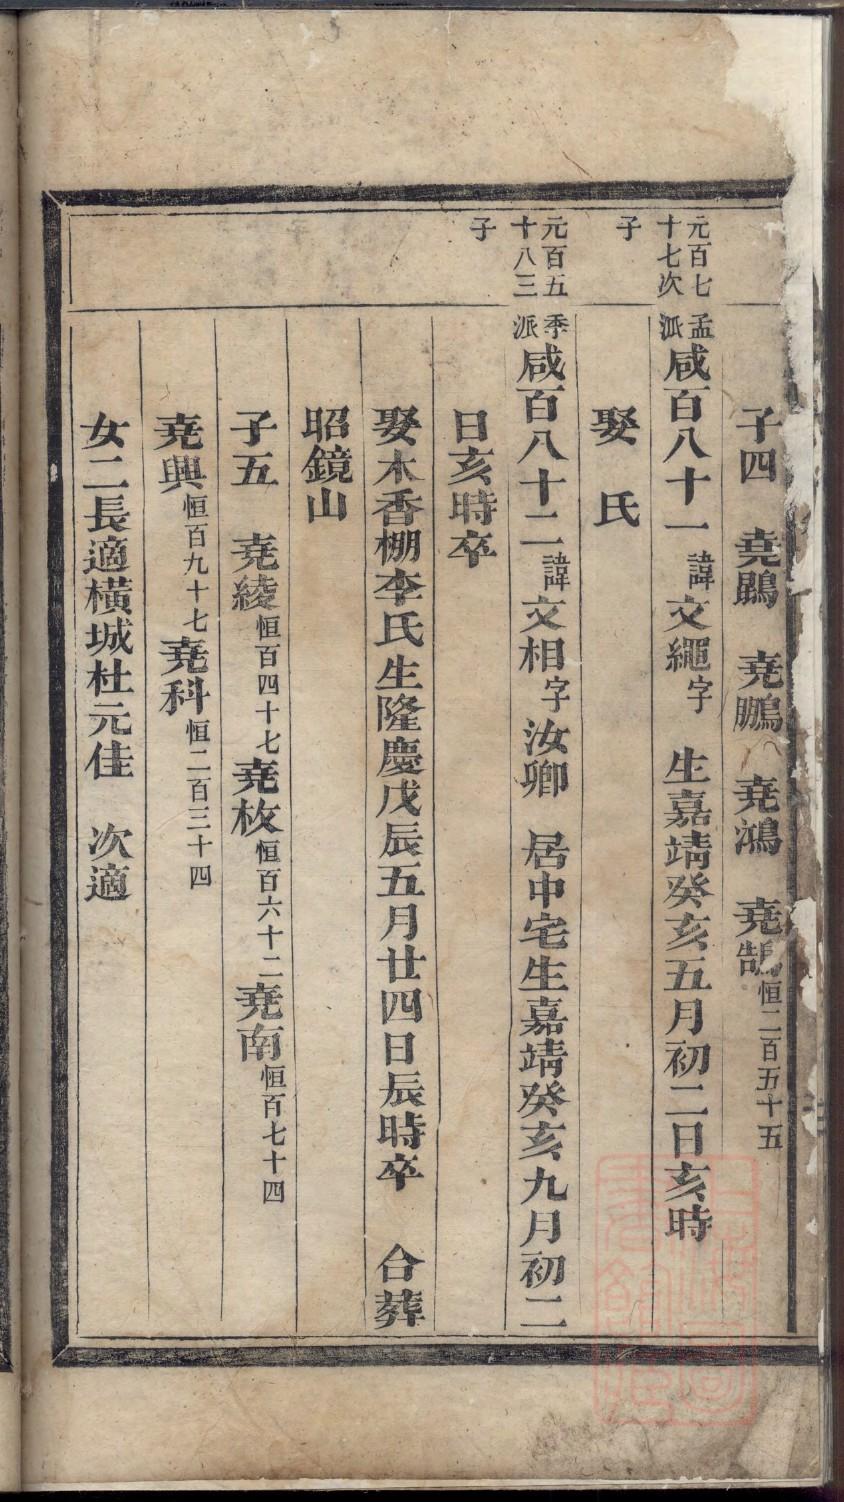 子四　堯鵾　堯鵬　堯鴻　堯鵠恒二百五十五
元百七十七次子
孟派咸百八十一諱文繩字　生嘉靖癸亥五月初二日亥時
娶　氏
元百五十八三子
季派咸百八十二諱文相字汝卿　居中宅生嘉靖癸亥九月初二
日亥時卒
娶木香棚李氏生隆慶戊辰五月廿四日辰時卒　合葬
昭鏡山
子五　堯綾恒百四十七堯枚恒百六十二堯南恒百七十四
堯興恒百九十七堯科恒二百三十四
女二長適橫城杜元佳　次適